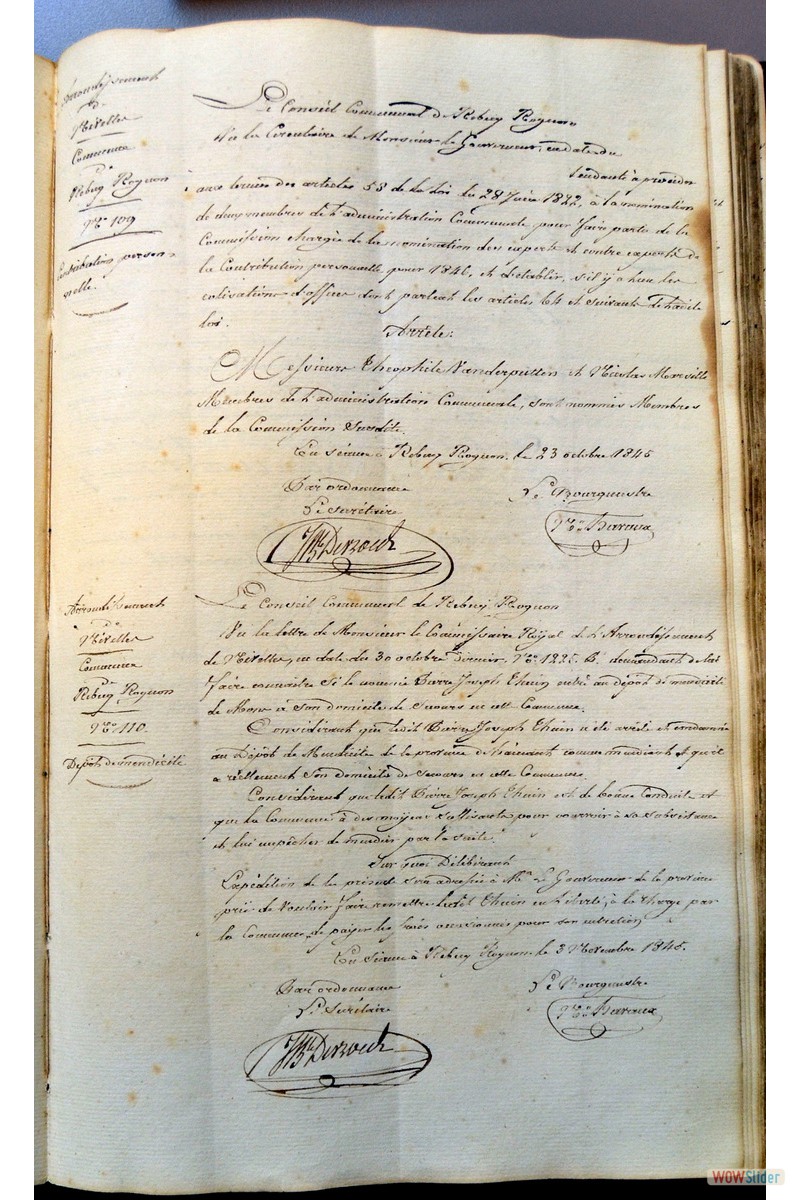 Arrondissement
de
Nivelles
Commune
de
Rebecq Rognon
N° 109
Contribution person-
nelle.
Le Conseil Communal de Rebecq Rognon
Vu la Circulaire de Monsieur le Gouverneur, en date du
tendante à procéder
aux termes des articles 58 de la loi du 28 Juin 1822, à la nomination
de deux membres de l'administration Communale pour faire partie de la
Commission chargée de la nomination des experts et contre experts de
la Contribution personnelle pour 1846, et d'établir, s'il y a lieu les
cotisations d'office dont parlent les articles 64 et suivants de ladite
loi.
Arrête:
Messieurs Théophile Vanderputten et Nicolas
Membres de l'administration Communale, sont nommés Membres
de la Commission Susdite.
En séance à Rebecq Rognon, le 23 octobre 1845
Par ordonnance
Le Secrétaire
Le Bourgmestre
Arrondissement
de
Nivelles
Commune
de
Rebecq Rognon
N° 110.
Dépôt de mendicité
Le Conseil Communal de Rebecq Rognon
Vu la lettre de Monsieur le Commissaire Royal de l'Arrondissement
de Nivelles, en date du 30 octobre dernier, N° 1225 B. demandant de lui
faire connaître si le nommé Pierre Joseph Thuin entré au dépôt de mendicité
de Mons a son domicile de secours en cette Commune.
Considérant que ledit Pierre Joseph Thuin a été arrêté et condamné
au Dépôt de Mendicité de la province de Hainaut comme mendiant et qu'il
a réellement son domicile de secours en cette Commune.
Considérant que ledit Pierre Joseph Thuin est de bonne Conduite et
que la Commune a des moyens suffisants pour pourvoir à sa subsistance
et lui empêcher de mendier par la suite.
Sur quoi Délibérant
Expédition de la présente sera adressée à Mr. le Gouverneur de la province
prié de vouloir faire remettre ledit Thuin en liberté, à la charge par
la Commune de payer les frais occasionnés pour son entretien
En séance à Rebecq Rognon le 3 Novembre 1845.
Par ordonnance
Le Secrétaire
Le Bourgmestre
WOWSlider